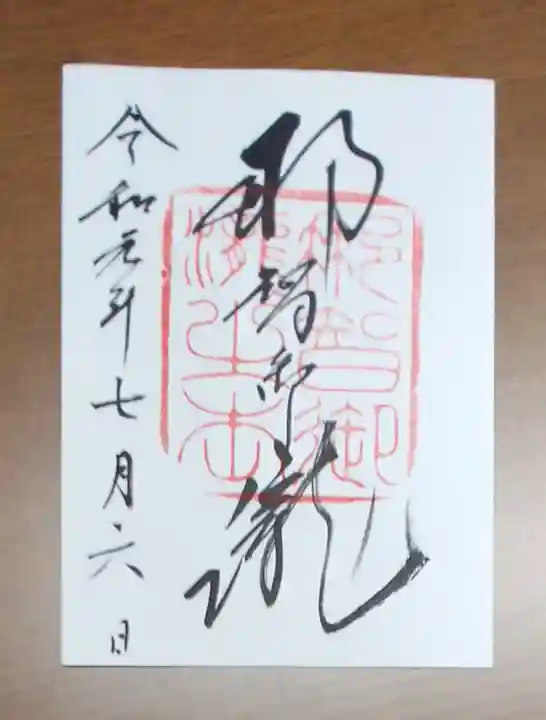 那智御瀧
令和元年七月六日